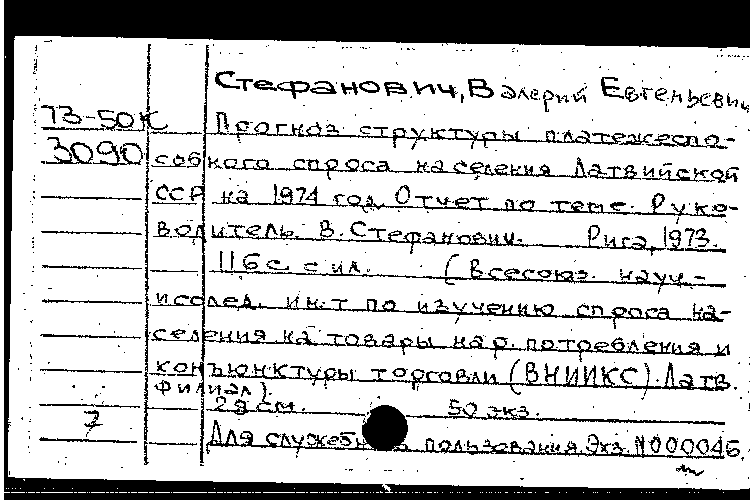 Стефанович, Валерий Евгеньевич
ТЗ-50К Прогноз структуры платежеспо-
3090 собного спроса населения Латвийской
ССР на 1974 год. Отчет по теме. Руко-
водитель В. Стефанович. Рига, 1973.
116 с. с ил. (Всесоюз. науч.-
исслед. ин-т по изучению спроса на-
селения на товары нар. потребления и
конъюнктуры торговли (ВНИИКС). Латв.
филиал)
29 см. 50 экз.
7 Для служебного пользования. Экз. N000046.